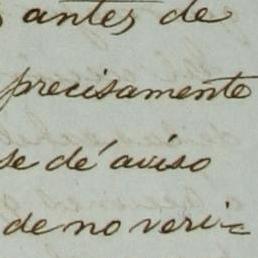 antes de
precisamente
se dé aviso
de no veri=